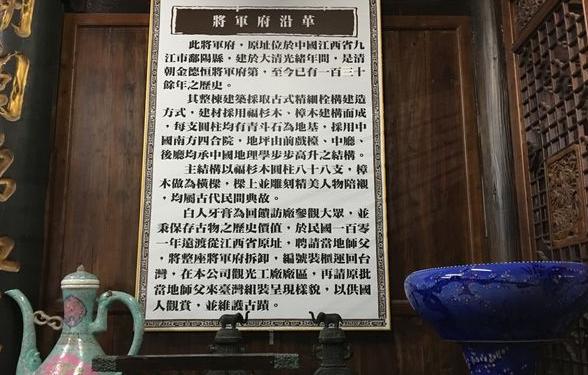 將軍府沿革
此將軍府，原址位於中國江西省九
江市鄱陽縣，建於大清光緒年間，是清
朝金德恒將軍府第，至今已有一百三十
餘年之歷史。
其整棟建築採取古式精細栓構建造
方式，建材採用福杉木、樟木建構而成
，每支圓柱均有青斗石為地基，採用中
國南方四合院，地坪由前戲樟、中廳、
後廳均承中國地理學步步高升之結構。
主結構以福杉木圓柱八十八支，樟
木做為橫樑，樑上並雕刻精美人物陪襯
，均屬古代民間典故。
白人牙膏為回饋訪廠參觀大眾，並
秉保存古物之歷史價值，於民國一百零
一年遠渡從江西省原址，聘請當地師父
，將整座將軍府拆卸，編號裝櫃運回台
灣，在本公司觀光工廠廠區，再請原批
當地師父來臺灣組裝呈現樣貌，以供國
人觀賞，並維護古蹟。